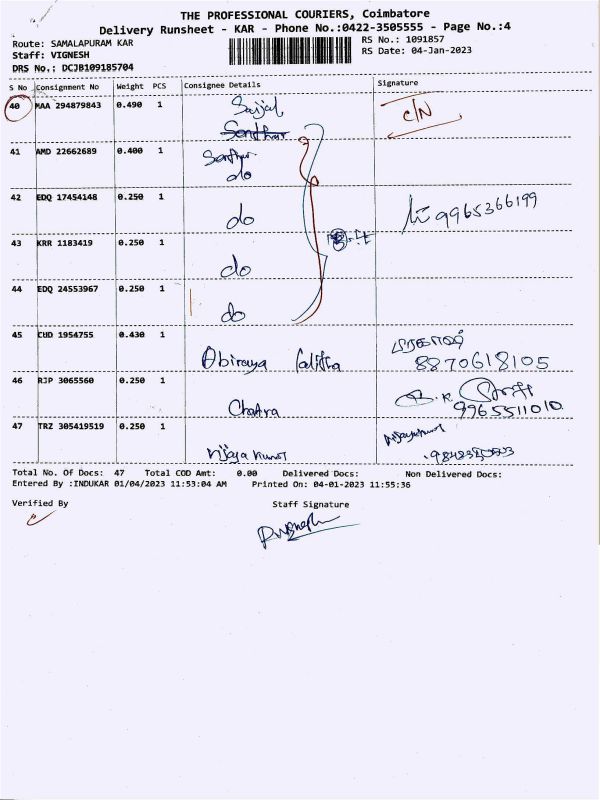 THE PROFESSIONAL COURIERS, Coimbatore
Delivery Runsheet - KAR - Phone No.:0422-3505555 - Page No.:4
Route: SAMALAPURAM KAR
RS No.: 1091857
Staff: VIGNESH
RS Date: 04-Jan-2023
DRS No.: DCJB109185704
S No Consignment No Weight PCS Consignee Details Signature
40 MAA 294879843 0.490 1 Saijal C/N
Senthur
41 AMD 22662689 0.400 1 Senthur
do
42 EDQ 17454148 0.250 1 do 9965366199
43 KRR 1183419 0.250 1 do
44 EDQ 24553967 0.250 1 do
45 CUD 1954755 0.430 1 Abiraya Lalitha
8870618105
46 RJP 3065560 0.250 1 Chakra
9965511010
47 TRZ 305419519 0.250 1 Vijaya Kumar Vijayakumar
Total No. Of Docs: 47 Total COD Amt: 0.00 Delivered Docs: Non Delivered Docs:
Entered By :INDUKAR 01/04/2023 11:53:04 AM Printed On: 04-01-2023 11:55:36
Verified By Staff Signature